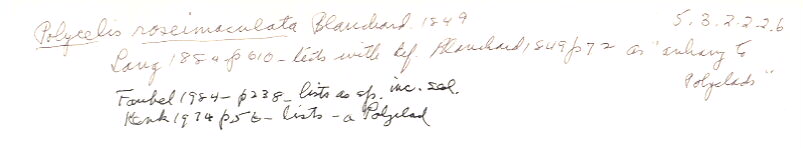 Polycelis roseimaculata Blanchard 1849
5.3.2.2.2.6
Lang 1884 p 610 - lists with ref. Blanchard 1849 p72 as " to
Polyclads"
Faubel 1984 - p238 - lists as sp. inc. sed.
Kenk 1974 p56 - lists - a Polyclad